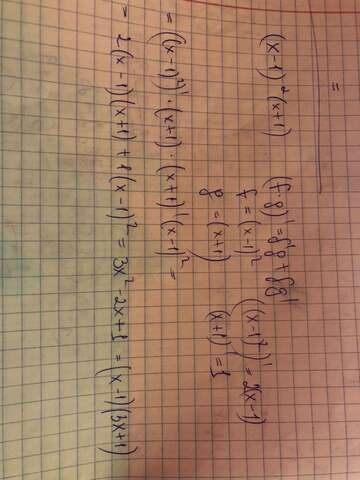 =
(x-1)²(x+1) (f·g)' = f'g + fg'
f = (x-1)² ((x-1)²)' = 2(x-1)
g = (x+1) (x+1)' = 1
= ((x-1)²)' · (x+1) · (x+1)'(x-1)² =
= 2(x-1)(x+1) + 1(x-1)² = 3x² - 2x + 1 = (x-1)(3x+1)